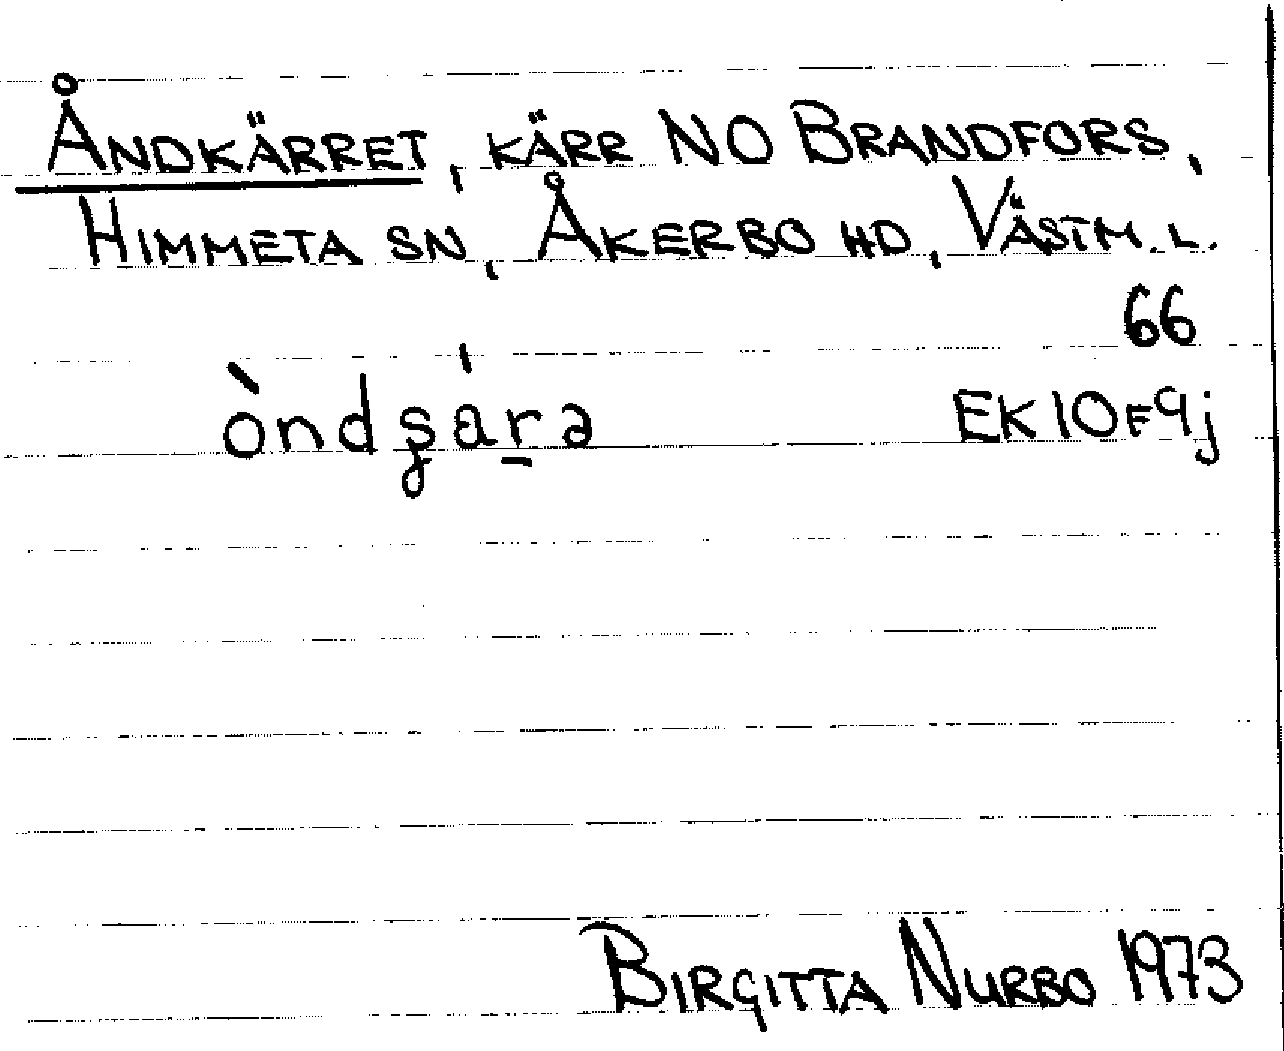 ÅNDKÄRRET, KÄRR NO BRANDFORS,
HIMMETA SN, ÅKERBO HD, VÄSTM.L.
66
EK10F9j
BIRGITTA NURBO 1973